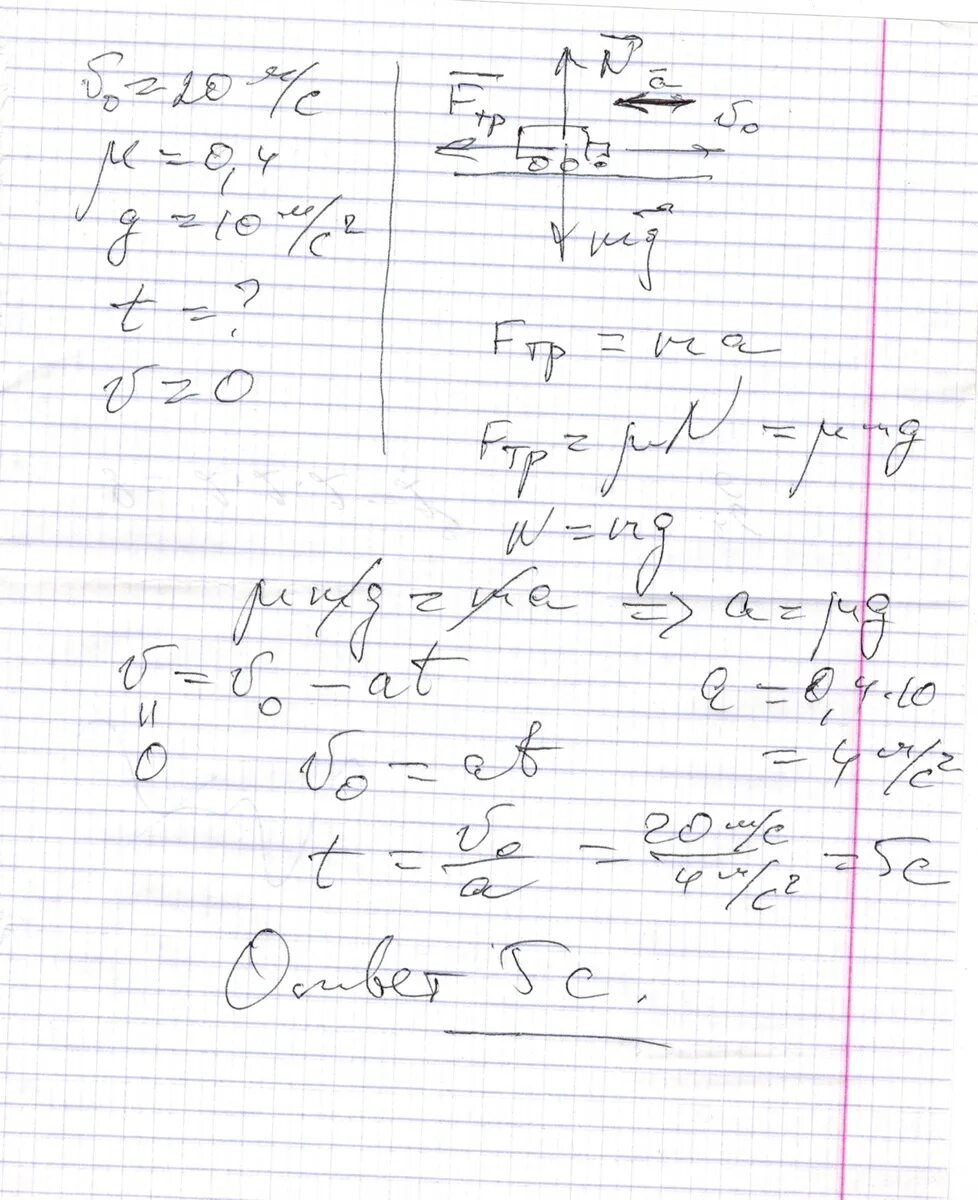 v₀ = 20 м/с
μ = 0,4
g = 10 м/с²
t = ?
v = 0
N
a
Fтр
v₀
mg
Fтр = ma
Fтр = μN = μmg
N = mg
μmg = ma => a = μg
v = v₀ - at
a = 0,4·10
= 4 м/с²
"
0
v₀ = at
t = v₀/a = 20 м/с / 4 м/с² = 5с
Ответ 5с.